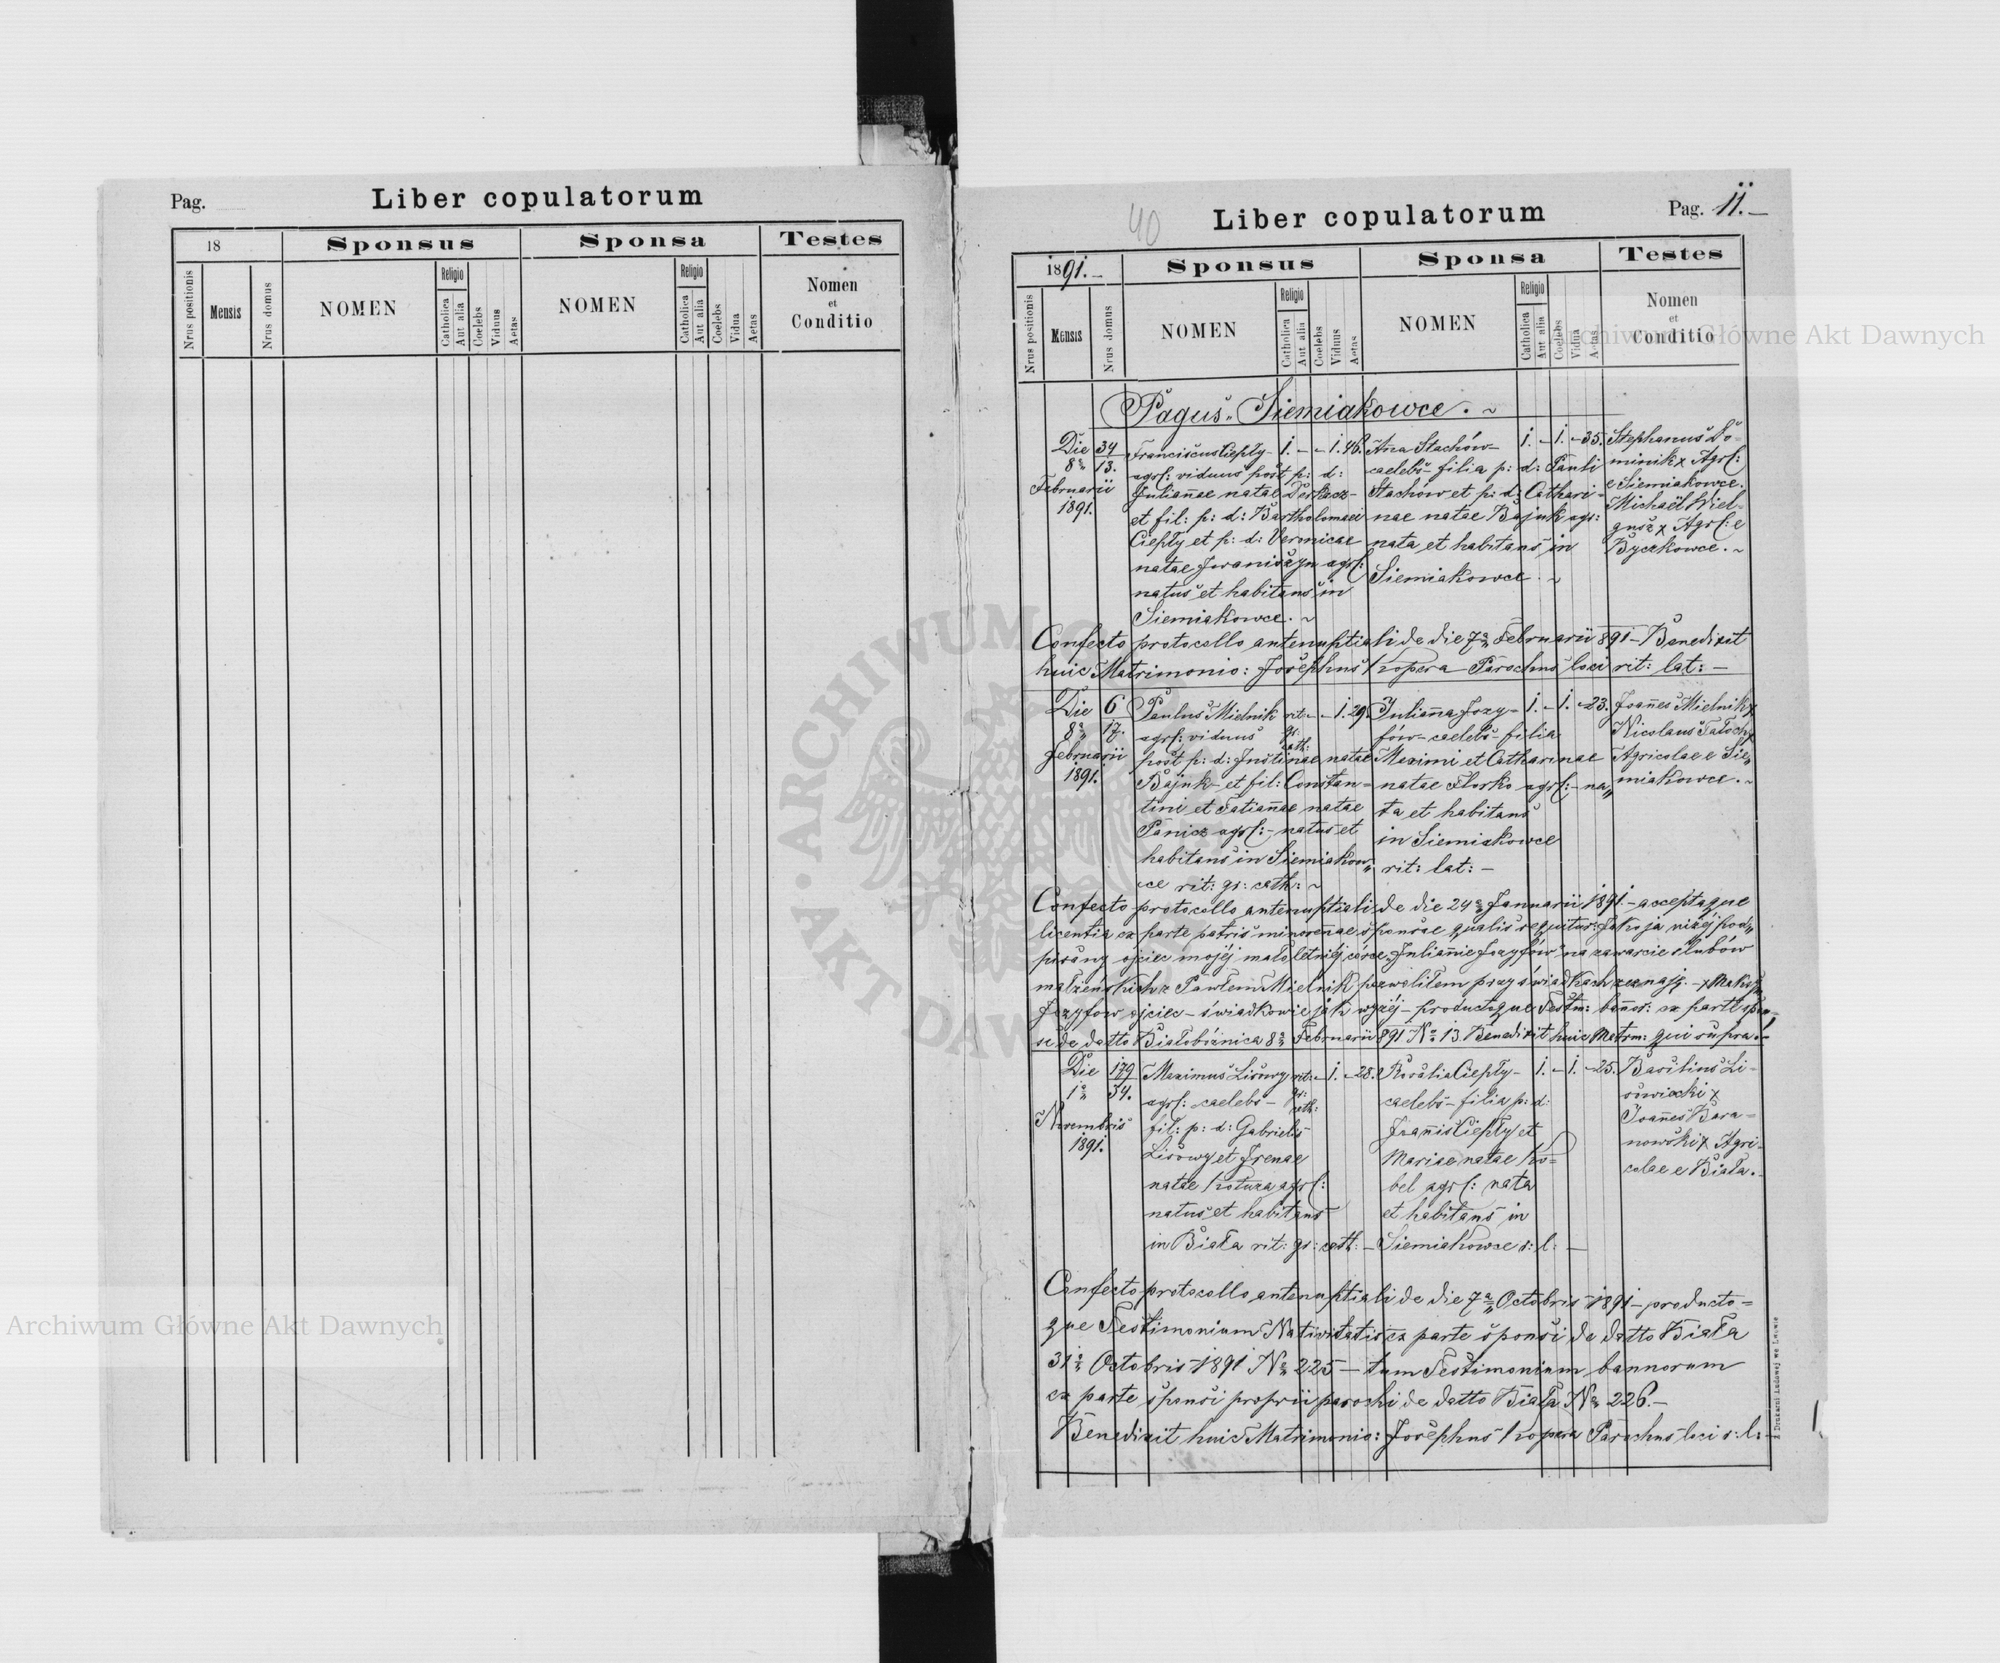 Pag.
Liber copulatorum
18
Sponsus
Sponsa
Testes
Nrus positionis
Mensis
Nrus domus
NOMEN
Religio
Catholica
Aut alia
Coelebs
Viduus
Aetas
NOMEN
Religio
Catholica
Aut alia
Coelebs
Vidua
Aetas
Nomen
et
Conditio
40
Liber copulatorum
Pag. 11.
1891.
Sponsus
Sponsa
Testes
Nrus positionis
Mensis
Nrus domus
NOMEN
Religio
Catholica
Aut alia
Coelebs
Viduus
Aetas
NOMEN
Religio
Catholica
Aut alia
Coelebs
Vidua
Aetas
Nomen
et
Conditio
Pagus Siemiakowce.
Die
8a
Februarii
1891.
34
13.
Franciscus Ciepły
agrl: viduus post p: d:
Juliannae natae Derkacz-
et fil: p: d: Bartholomaei
Ciepły et p: d: Veronicae
natae Iwaniszyn agrl:
natus et habitans in
Siemiakowce.
1. - - 1. 46.
Anna Stachów-
caelebs filia p: d: Pauli
Stachów et p: d: Cathari-
nae natae Bajuk agr:
nata et habitans in
Siemiakowce.
1. - 1. - 35.
Stephanus Do-
minik x Agrl:
e Siemiakowce.
Michaël Wiel-
gusz x Agrl: e
Byczkowce.
Confecto protocollo antenuptiali de die 7a Februarii 891 - Benedixit
huic Matrimonio: Josephus Kopera Parochus loci rit: lat: -
Die
8a
Februarii
1891.
6
17.
Paulus Mielnik
agrl: viduus
post p: d: Justinae natae
Bajuk et fil: Constan-
tini et Tatiannae natae
Panicz agrl: - natus et
habitans in Siemiakow-
ce rit: gr: cath:
rit: gr: cath: - 1. 29.
Julianna Jozy-
fów - caelebs - filia
Maximi et Catharinae
natae Florko agrl: - na-
ta et habitans
in Siemiakowce
rit: lat: -
1. - 1. - 23.
Joannes Mielnik x
Nicolaus
Agricolae e Sie-
miakowce.
Confecto protocollo antenuptiali de die 24a Januarii 1891 - acceptaque
licentia ex parte patris minorenae sponsae qualis sequitur: Jako ja niżej pod-
pisany ojciec mojéj małoletniéj córce Juliannie Jozyfów na zawarcie ślubów
małżeńskich z Pawłem Mielnik pozwoliłem przy świadkach zeznaję. - x Maksym
Jozyfow ojciec - świadkowie jak wyżéj - productoque Testm: bannor: ex parte spon-
si de datto Białobóżnica 8a Februarii 891 No 13. Benedixit huic Matrm: qui supra.
Die
1a
Novembris
1891.
179
34.
Maximus Lisowy
agrl: caelebs -
fil: p: d: Gabrielis
Lisowy et Irenae
natae Kotuza agrl:
natus et habitans
in Biała rit: gr: cath: -
rit: gr: cath: - 1. - 28.
Rosalia Ciepły -
caelebs - filia p: d:
Joannis Ciepły et
Mariae natae Ko-
bel agrl: nata
et habitans in
Siemiakowce r: l: -
1. - 1. - 25.
Basilius Li-
sowiecki x
Joannes Bara-
nowski x Agri-
colae e Biała.
Confecto protocollo antenuptiali de die 7a Octobris 1891 - producto-
que Testimonium Nativitatis ex parte sponsi de datto Biała
31a Octobris 1891 No 225 - tum Testimonium bannorum
ex parte sponsi proprii parochi de datto Biała No 226. -
Benedixit huic Matrimonio: Josephus Kopera Parochus loci r: l: -
Z Drukarni Ludowej we Lwowie
Archiwum Główne Akt Dawnych
Archiwum Główne Akt Dawnych
ARCHIWUM
AKT DAWNYCH